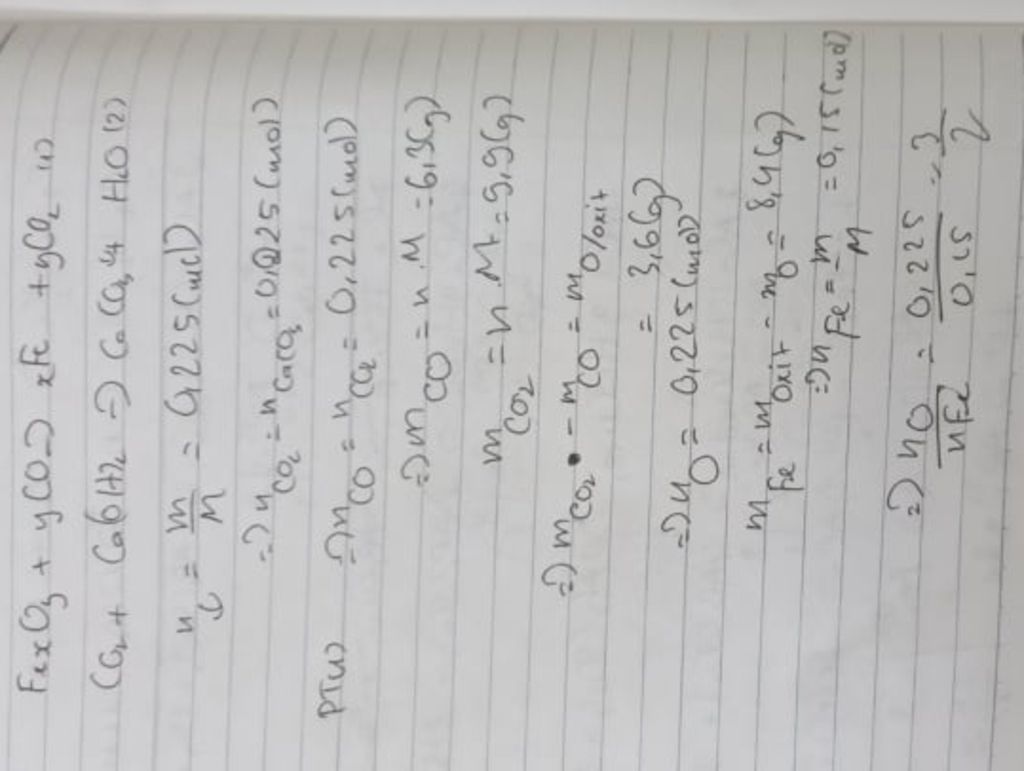 FexOy + yCO => xFe + yCO2 (1)
CO2 + Ca(OH)2 => CaCO3↓ + H2O (2)
n↓ = m/M = 0,225(mol)
=> nCO2 = nCaCO3 = 0,0225(mol)
PT(1) => nCO = nCO2 = 0,225(mol)
=> mCO = n.M = 6,3(g)
mCO2 = n.M = 9,9(g)
=> mCO2 - mCO = mO/oxit
= 3,6(g)
=> nO = 0,225(mol)
mFe = moxit - mO = 8,4(g)
=> nFe = m/M = 0,15(mol)
=> nO/nFe = 0,225/0,15 = 3/2